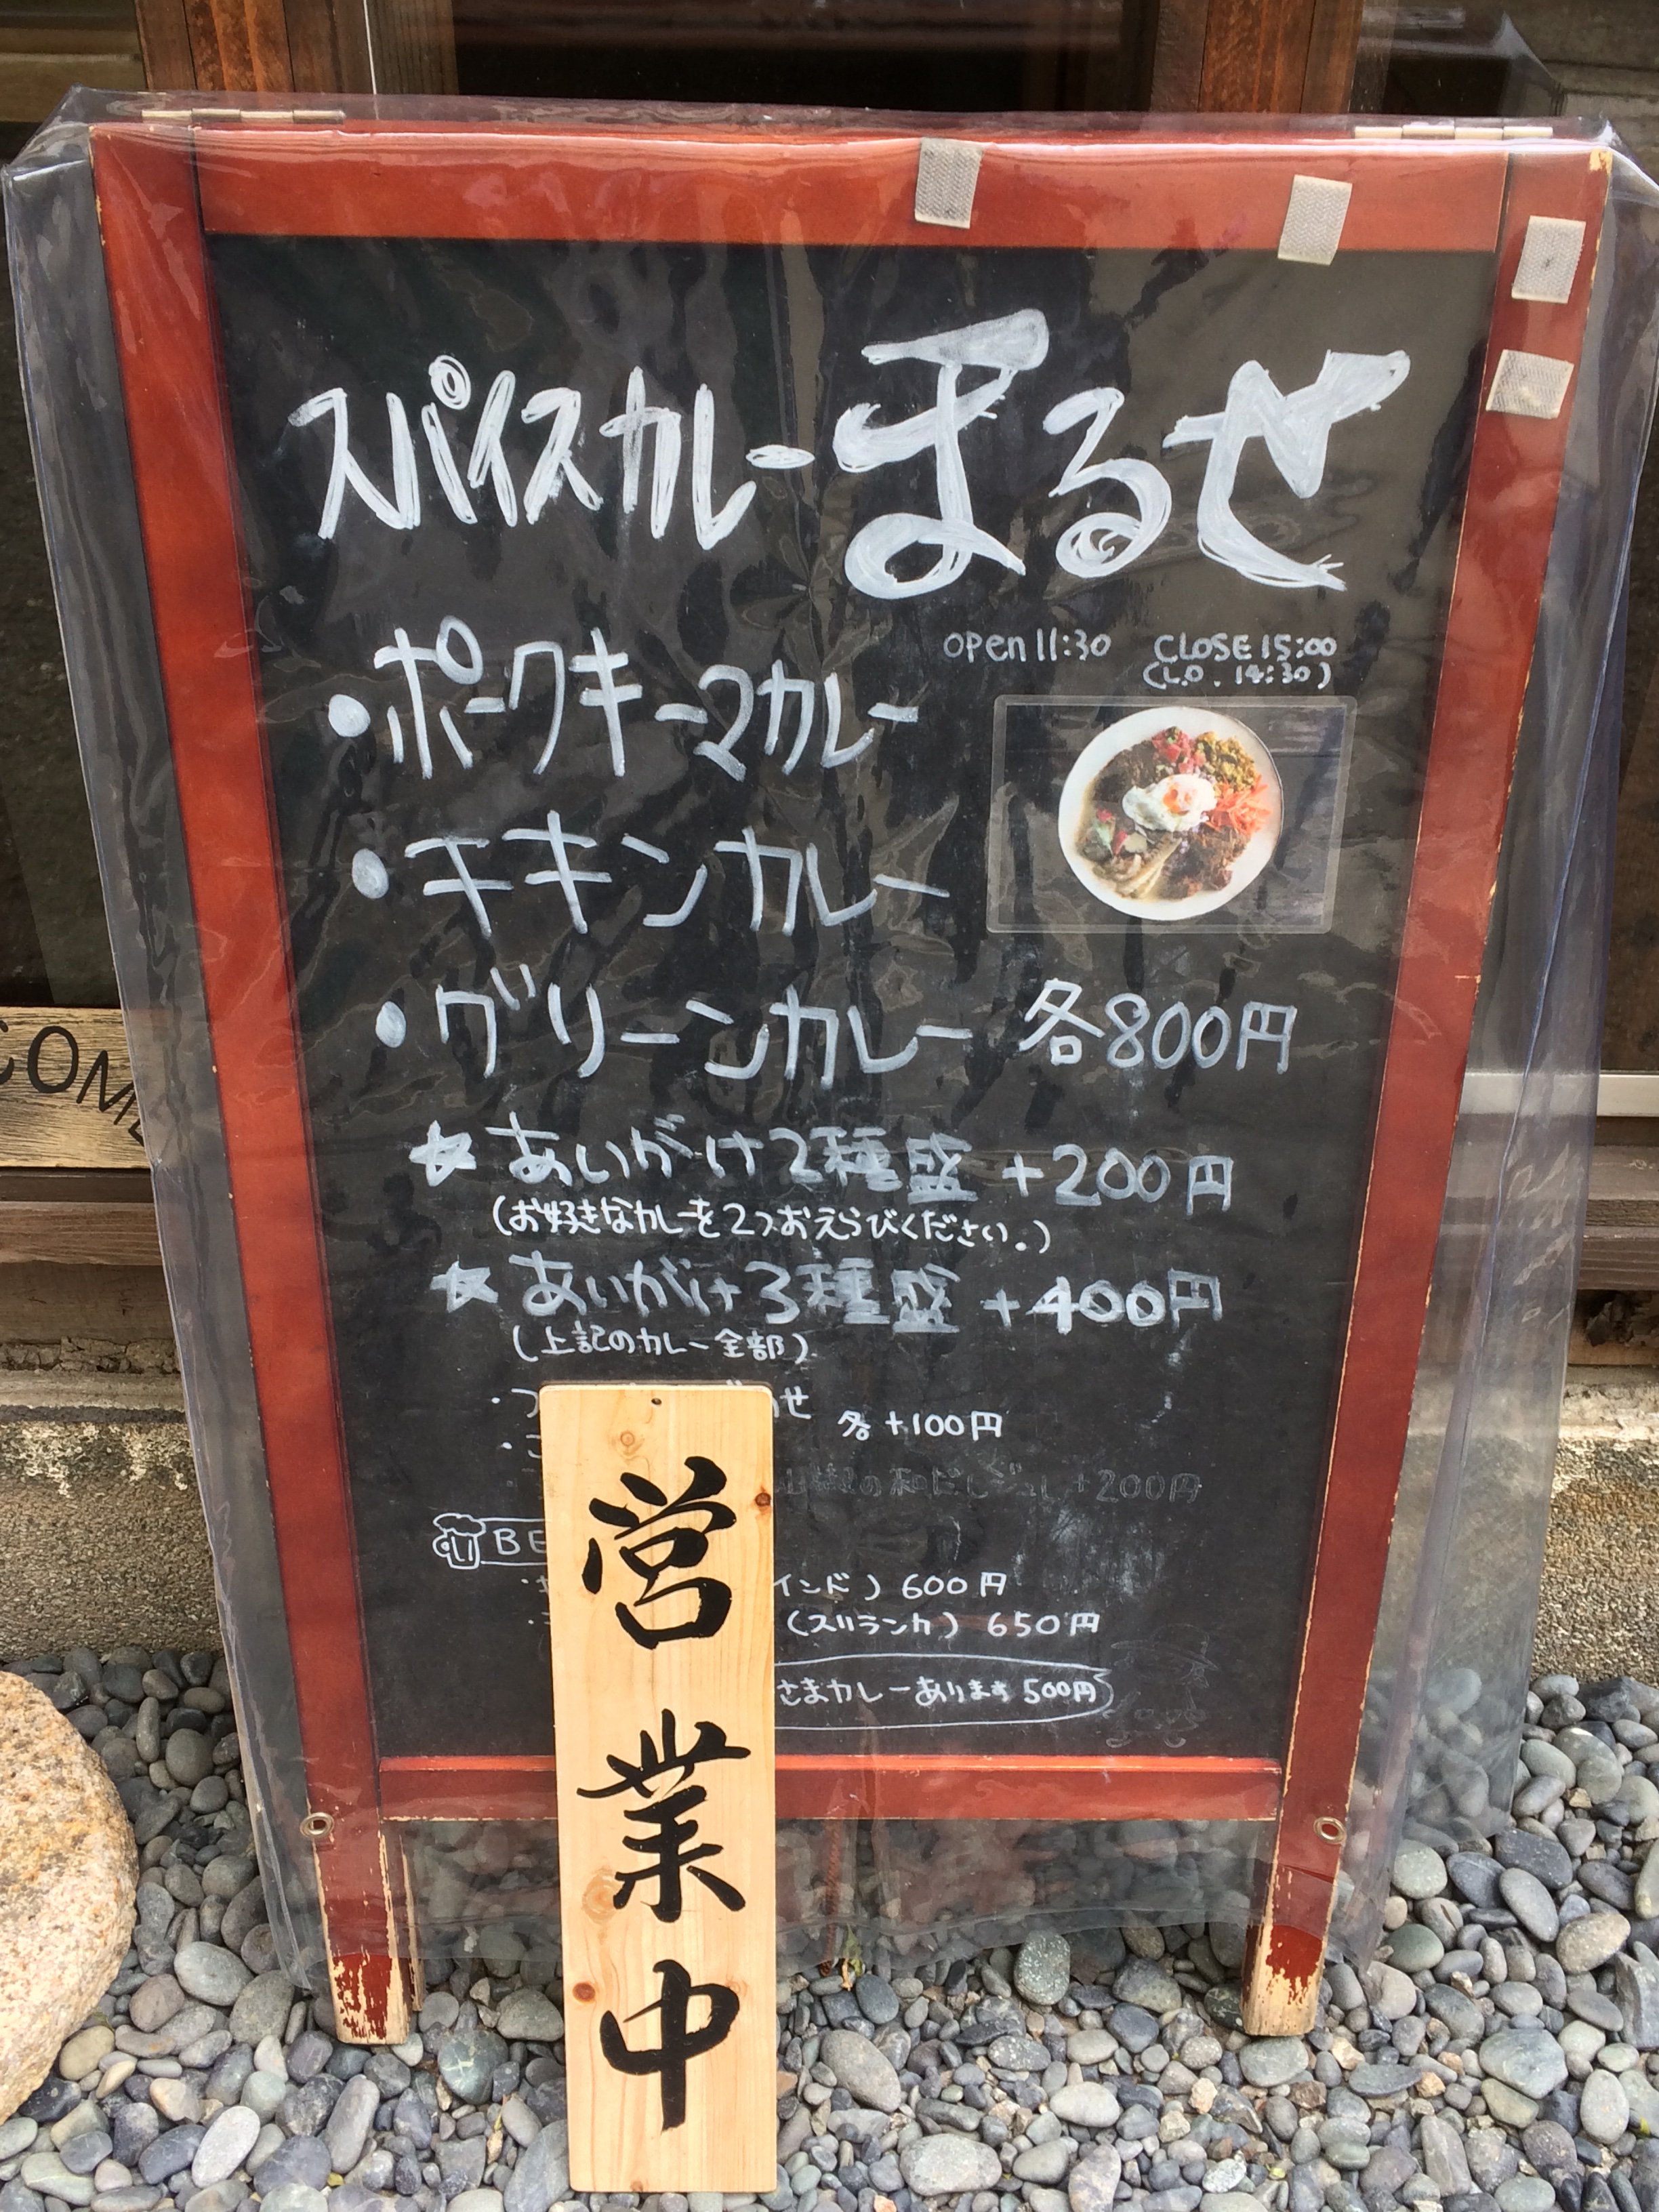 スパイスカレーまるせ
open 11:30 CLOSE 15:00
(L.O. 14:30)
・ポークキーマカレー
・チキンカレー
・グリーンカレー 各800円
★あいがけ2種盛 +200円
(お好きなカレーを2つおえらびください。)
★あいがけ3種盛 +400円
(上記のカレー全部)
せ 各+100円
+200円
BE
インド) 600円
(スリランカ) 650円
さまカレーあります 500円
営業中
COME